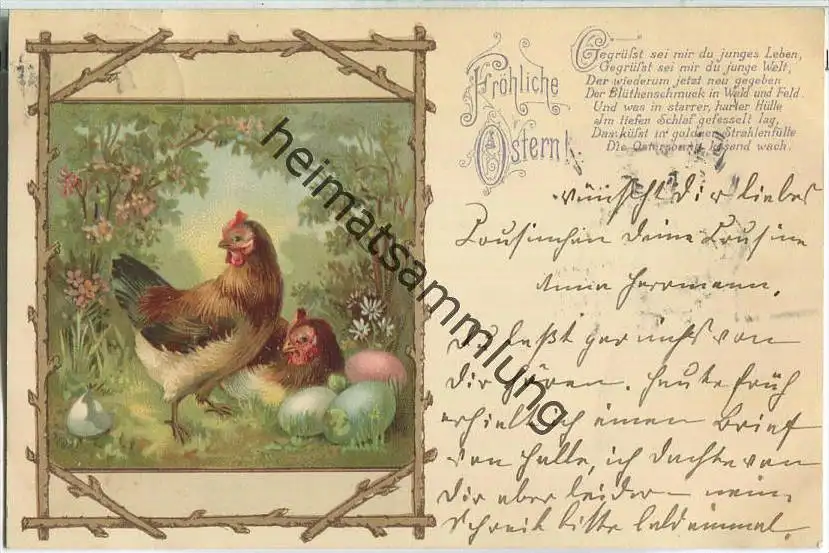 Fröhliche
Ostern!
Gegrüßt sei mir du junges Leben,
Gegrüßt sei mir du junge Welt,
Der wiederum jetzt neu gegeben
Der Blüthenschmuck in Wald und Feld.
Und was in starrer, harter Hülle
Im tiefen Schlaf gefesselt lag,
Das küßt in goldner Strahlenfülle
Die Ostersonne kosend wach.
wünscht Dir liebes
Cousinchen Deine Cousine
Anna Herrmann.
Du läßt gar nichts von
Dir hören. Heute früh
erhielt ich einen Brief
von Halle, ich dachte von
Dir aber leider nein.
Schreib bitte bald einmal.
heimatsammlung